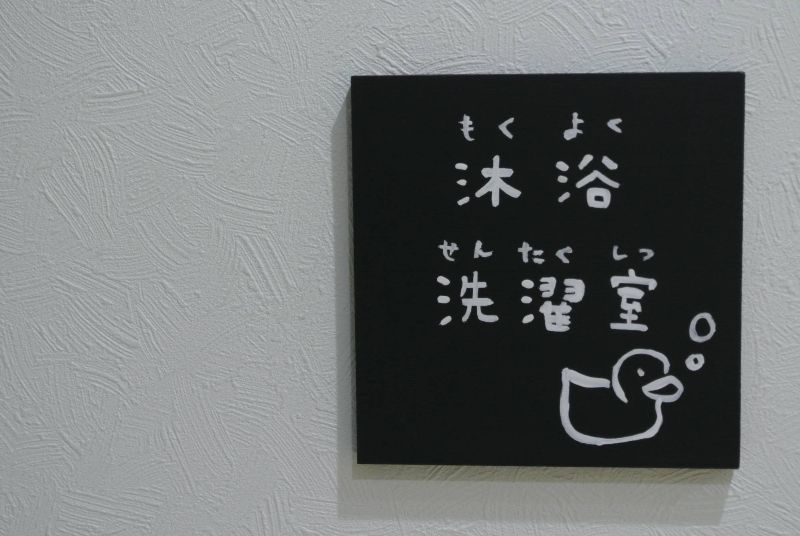 もく よく
沐 浴
せん たく しつ
洗 濯 室